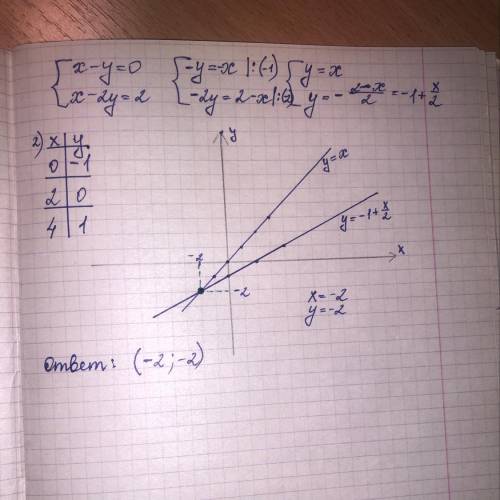 { x-y=0 { -y=-x |:(-1) { y=x
x-2y=2 -2y=2-x |:(-2) y=-\frac{2-x}{2}=-1+\frac{x}{2}
2) x | y
0 | -1
2 | 0
4 | 1
y
y=x
y=-1+\frac{x}{2}
x
-2
-2
x=-2
y=-2
Ответ: (-2;-2)